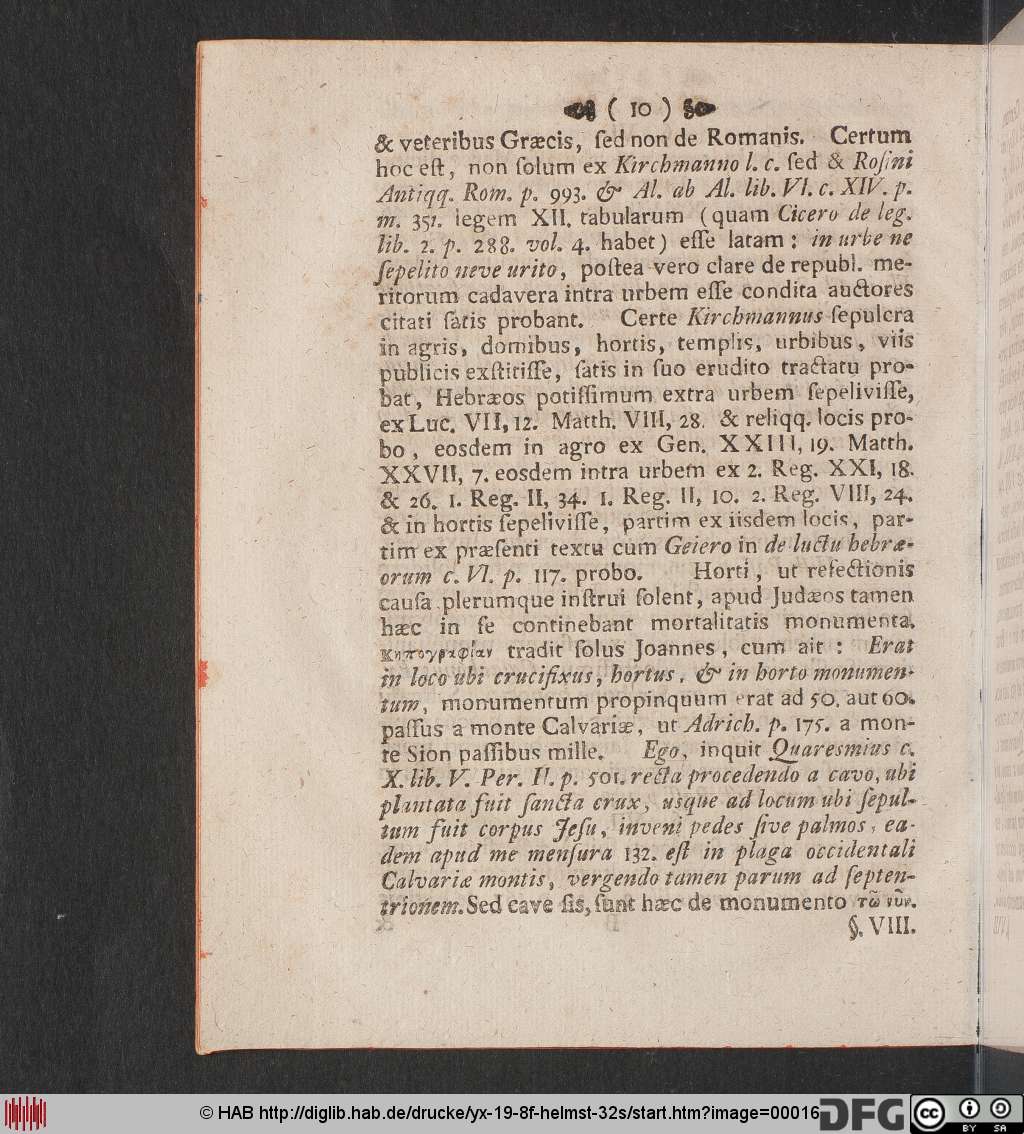 ( 10 )
& veteribus Græcis, ſed non de Romanis. Certum
hoc eſt, non ſolum ex Kirchmanno l. c. ſed & Roſini
Antiqq. Rom. p. 993. & Al. ab Al. lib. VI. c. XIV. p.
m. 351. legem XII. tabularum (quam Cicero de leg.
lib. 2. p. 288. vol. 4. habet) eſſe latam: in urbe ne
ſepelito neve urito, poſtea vero clare de republ. me-
ritorum cadavera intra urbem eſſe condita auctores
citati ſatis probant. Certe Kirchmannus ſepulcra
in agris, domibus, hortis, templis, urbibus, viis
publicis exſtitiſſe, ſatis in ſuo erudito tractatu pro-
bat, Hebræos potiſſimum extra urbem ſepeliviſſe,
ex Luc. VII, 12. Matth. VIII, 28. & reliqq. locis pro-
bo, eosdem in agro ex Gen. XXIII, 19. Matth.
XXVII, 7. eosdem intra urbem ex 2. Reg. XXI, 18.
& 26. 1. Reg. II, 34. 1. Reg. II, 10. 2. Reg. VIII, 24.
& in hortis ſepeliviſſe, partim ex iisdem locis, par-
tim ex præſenti textu cum Geiero in de luctu hebræ-
orum c. VI. p. 117. probo. Horti, ut refectionis
cauſa plerumque inſtrui ſolent, apud Judæos tamen
hæc in ſe continebant mortalitatis monumenta.
Κηπογραφίαν tradit ſolus Joannes, cum ait : Erat
in loco ubi crucifixus, hortus, & in horto monumen-
tum, monumentum propinquum erat ad 50. aut 60.
paſſus a monte Calvariæ, ut Adrich. p. 175. a mon-
te Sion paſſibus mille. Ego, inquit Quaresmius c.
X. lib. V. Per. II. p. 501. recta procedendo a cavo, ubi
plantata fuit ſancta crux, usque ad locum ubi ſepul-
tum fuit corpus Jeſu, inveni pedes ſive palmos, ea-
dem apud me menſura 132. eſt in plaga occidentali
Calvariæ montis, vergendo tamen parum ad ſepten-
trionem. Sed cave ſis, ſunt hæc de monumento τῶ νῦν.
§. VIII.
© HAB http://diglib.hab.de/drucke/yx-19-8f-helmst-32s/start.htm?image=00016
DFG
cc
BY SA